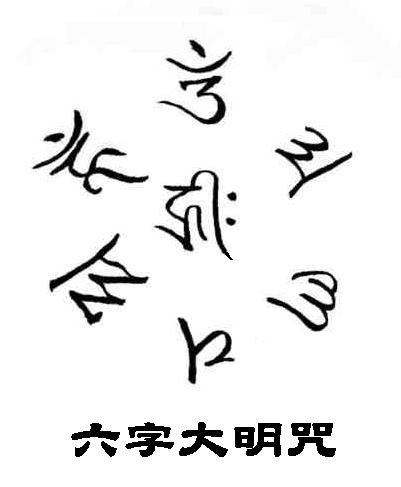 𑖌𑖼
𑖦
𑖜𑖰
𑖢
𑖟𑖿𑖦𑖸
𑖮𑖳𑖼
𑖮𑖿𑖨𑖱𑖾
六字大明咒